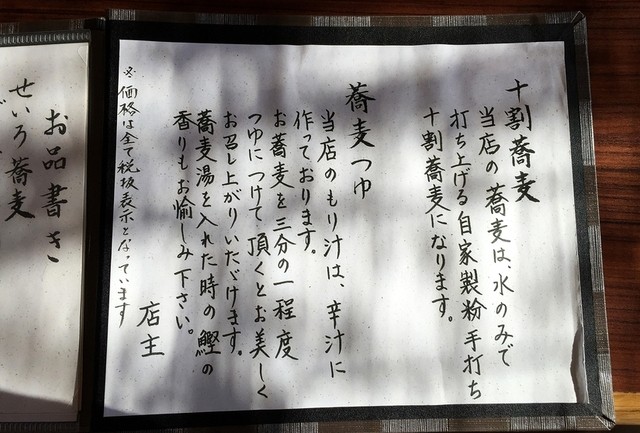 十割蕎麦
当店の蕎麦は、水のみで
打ち上げる自家製粉手打ち
十割蕎麦になります。
蕎麦つゆ
当店のもり汁は、辛汁に
作っております。
お蕎麦を三分の一程度
つゆにつけて頂くとお美しく
お召し上がりいただけます。
蕎麦湯を入れた時の鰹の
香りもお愉しみ下さい。
店主
※価格は全て税抜表示となっています
お品書き
せいろ蕎麦